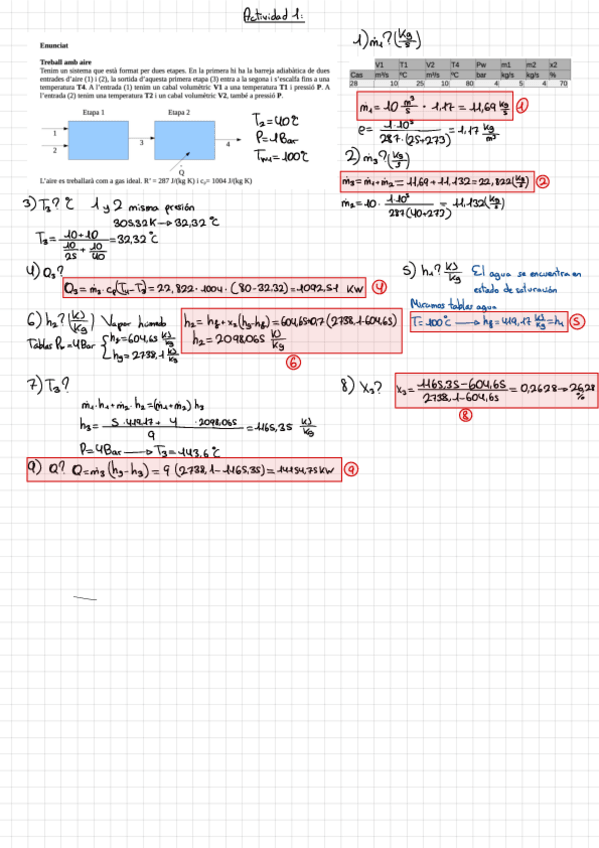 Actividad 1:
Enunciat
Treball amb aire
Tenim un sistema que està format per dues etapes. En la primera hi ha la barreja adiabàtica de dues
entrades d'aire (1) i (2), la sortida d'aquesta primera etapa (3) entra a la segona i s'escalfa fins a una
temperatura T4. A l'entrada (1) tenim un cabal volumètric V1 a una temperatura T1 i pressió P. A
l'entrada (2) tenim una temperatura T2 i un cabal volumètric V2, també a pressió P.
Etapa 1 Etapa 2
1
2
3
4
Q
L'aire es treballarà com a gas ideal. R' = 287 J/(kg K) i cp= 1004 J/(kg K)
T2=40°C
P=1Bar
1) ṁ1? (kg/s)
V1 T1 V2 T4 Pw m1 m2 x2
Cas m³/s ºC m³/s ºC bar kg/s kg/s %
28 10 25 10 80 4 5 4 70
ṁ1 = 10 m³/s · 1,17 = 11,69 kg/s ①
ρ = 1·10⁵ / 287·(25+273) = 1,17 kg/m³
2) ṁ3? (kg/s)
ṁ3 = ṁ1+ṁ2 = 11,69+11,132=22,822(kg/s) ②
ṁ2=10· 1·10⁵ / 287(40+273) = 11,132(kg/s)
3) T3? ℃ 1 y 2 misma presión
305,32K → 32,32°C
T3 = (10+10) / (10/25 + 10/40) = 32,32°C
4) Q3?
Q3 = ṁ3·cp(T4-T3) = 22,822·1004·(80-32.32)=1092,51 KW ④
5) h1? KJ/kg El agua se encuentra en
estado de saturación
Miramos tablas agua
T=100°C → hf=419,17 KJ/kg = h1 ⑤
6) h2? (KJ/kg) Vapor húmedo
Tablas Pw=4Bar { hf=604,65 KJ/kg
hg=2738,1 KJ/kg
h2 = hf+x2(hg-hf) = 604,65+0,7(2738,1-604,65)
h2=2098.065 KJ/kg
⑥
7) T3?
ṁ1·h1+ṁ2·h2=(ṁ1+ṁ2)h3
h3 = (5·419,17+4·2098.065) / 9 = 1165,35 KJ/kg
P=4Bar → T3=143,6°C
8) X3?
x3 = (1165,35-604,65) / (2738,1-604,65) = 0,2628 → 26,28 %
⑧
9) Q? Q=ṁ3(hg-h3) = 9(2738,1-1165,35)=14154,75KW ⑨